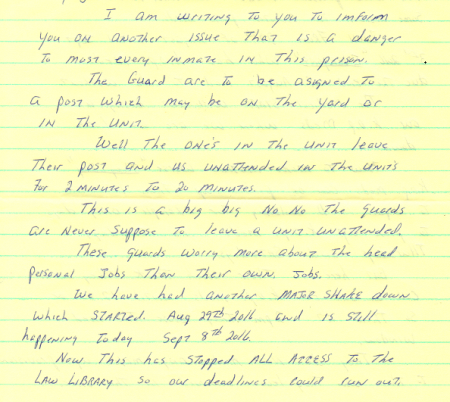 I am writing to you to imform
you on another issue that is a danger
to most every inmate in this prison.
The Guard are to be asigned to
a post which may be on the yard or
in the unit.
Well the one's in the unit leave
their post and us unattended in the units
for 2 minutes to 20 minutes.
This is a big big No No the guards
are never suppose to leave a unit unattended.
These guards worry more about the head
personal jobs than their own. jobs.
We have had another MAJOR SHAKE down
which STARTED. Aug 29th 2016 and is still
happening today Sept 8th 2016.
Now this has stopped ALL ACCESS to the
LAW LIBRARY so our deadlines could run out.